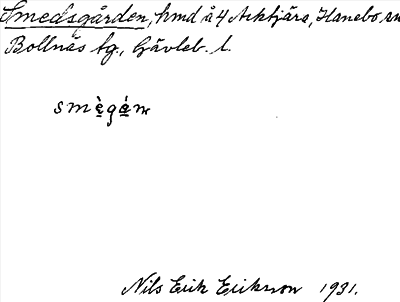 Smedsgården, hmd å 4 Arktjära, Hanebo sn
Bollnäs tg., Gävleb. l.
smègá̱n
Nils Erik Erikson 1931.